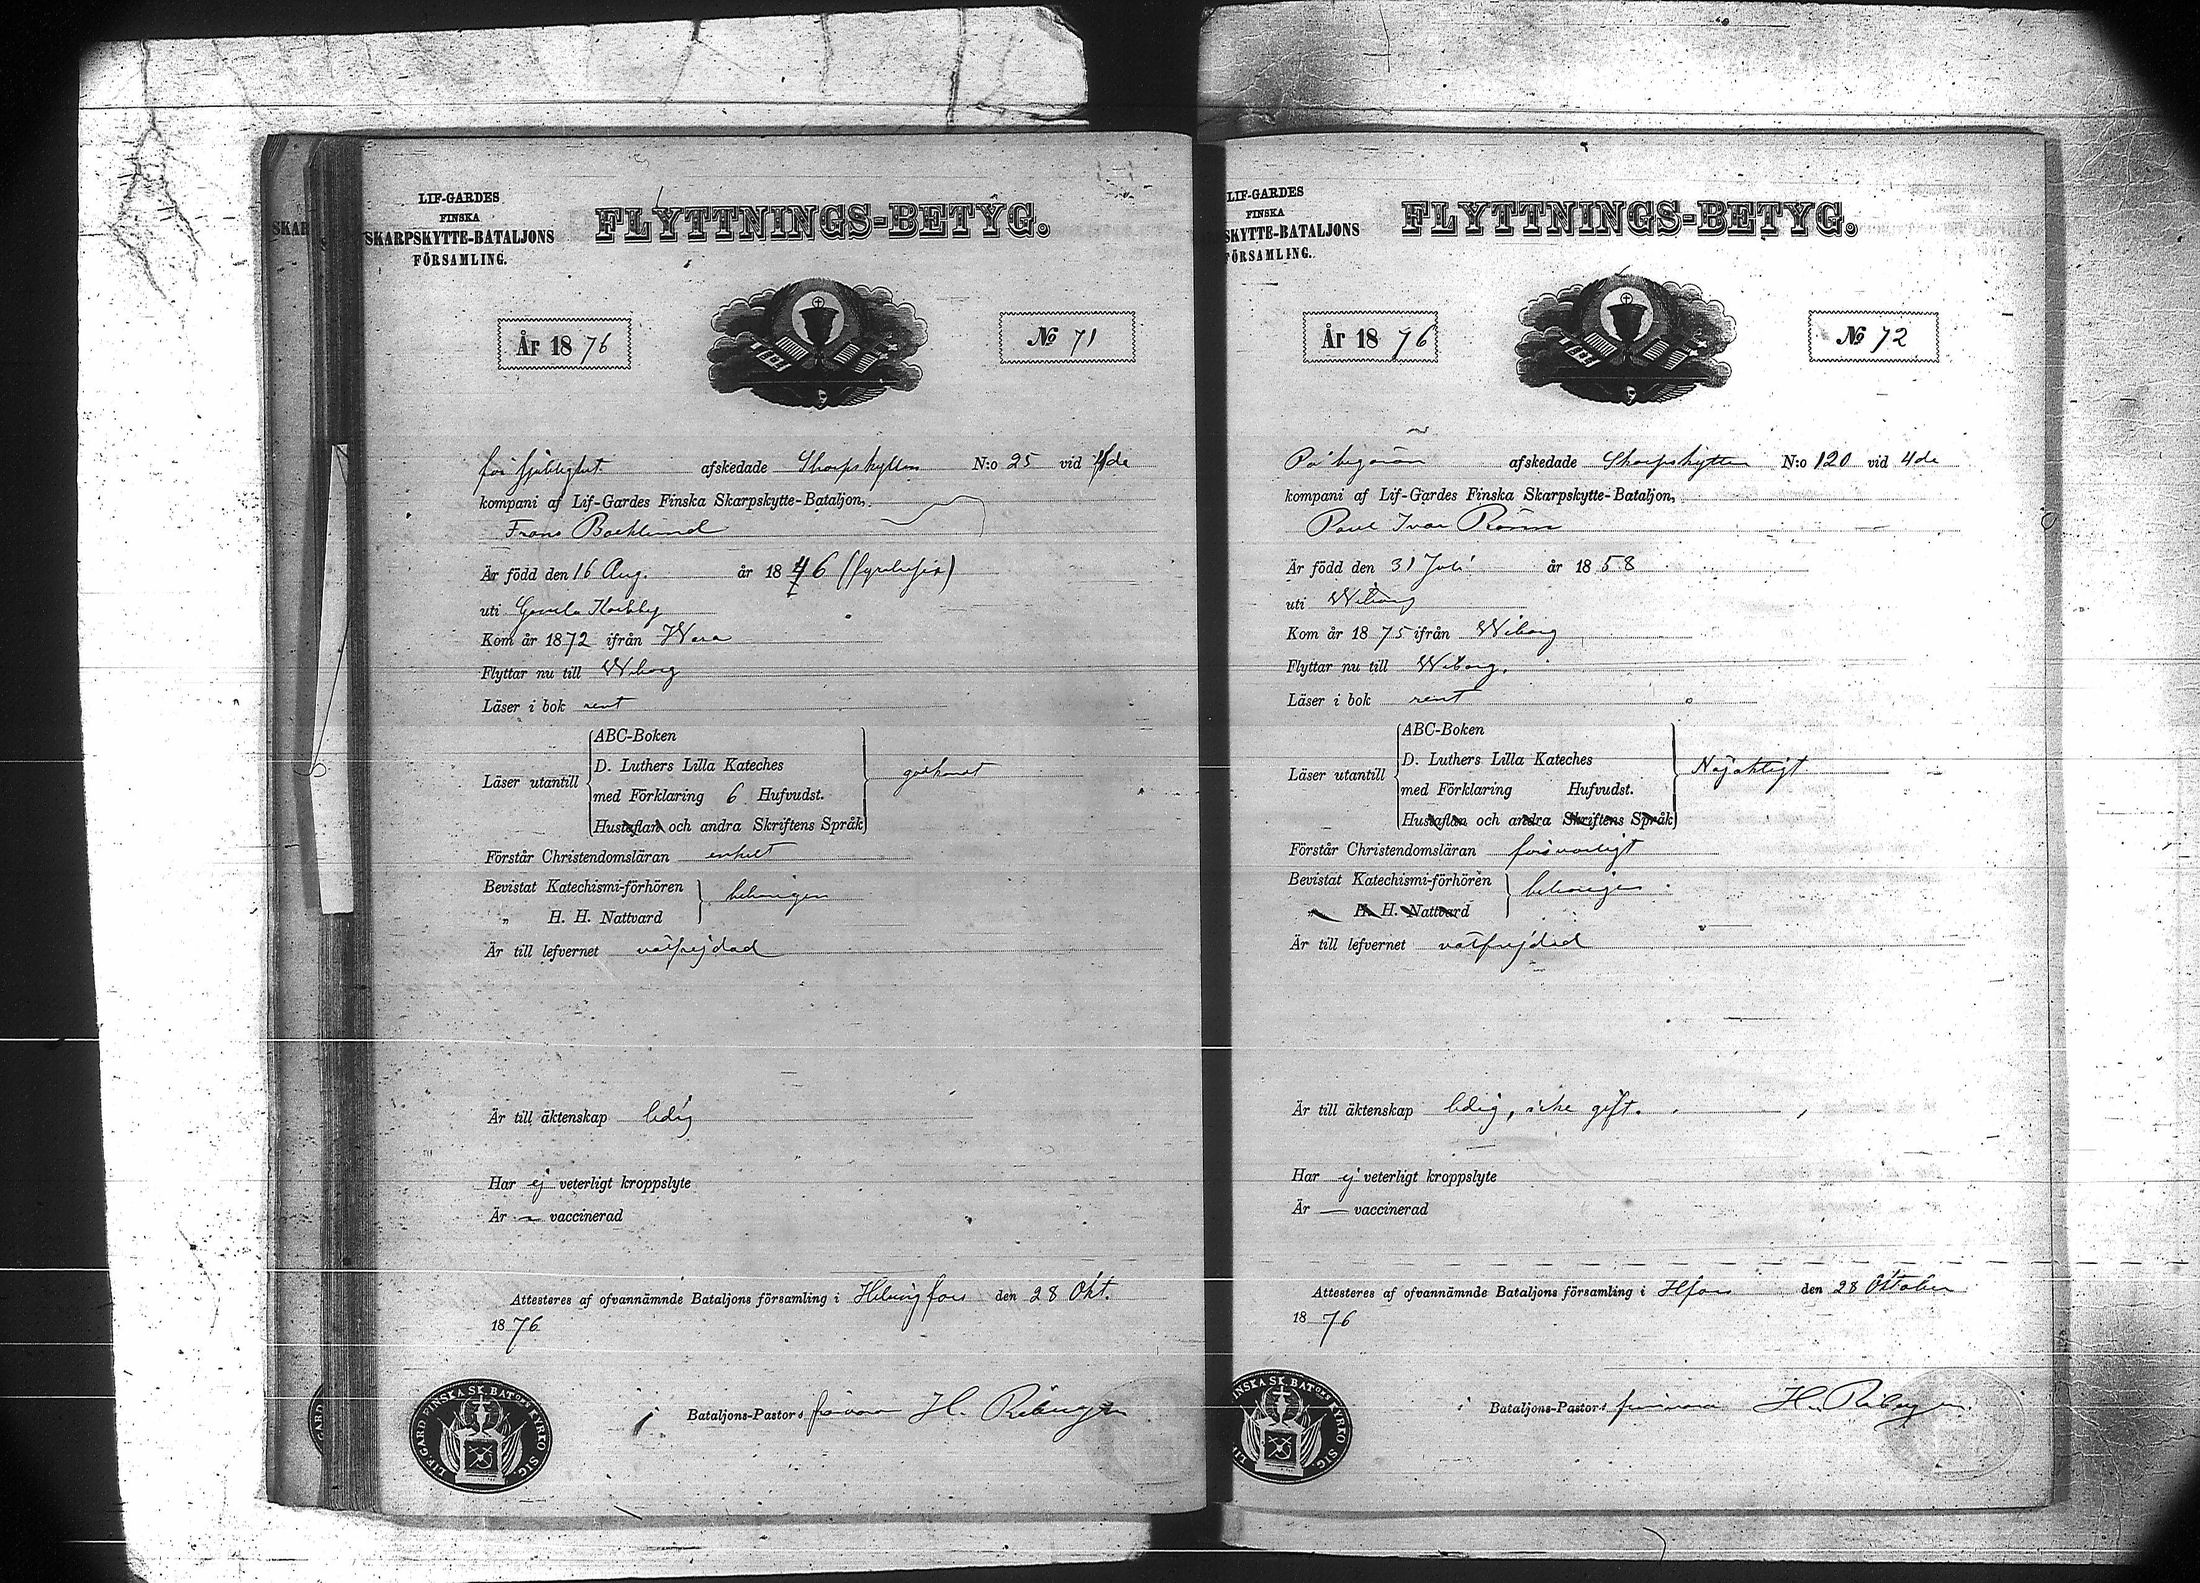 LIF-GARDES
FINSKA
SKARPSKYTTE-BATALJONS
FÖRSAMLING.
FLYTTNINGS-BETYG.
År 1876
No 71
afskedade Skarpskytten N:o 25 vid 4de
kompani af Lif-Gardes Finska Skarpskytte-Bataljon,
Frans Backlund
Är född den 16 Aug. år 1846
uti Gamla Karleby
Kom år 1872 ifrån Wasa
Flyttar nu till Wiborg
Läser i bok rent
Läser utantill
ABC-Boken
D. Luthers Lilla Kateches
med Förklaring 6 Hufvudst.
Hustaflan och andra Skriftens Språk
godkändt
Förstår Christendomsläran enkelt
Bevistat Katechismi-förhören
„ H. H. Nattvard
behörigen
Är till lefvernet välfrejdad
Är till äktenskap ledig
Har ej veterligt kroppslyte
Är — vaccinerad
Attesteras af ofvannämnde Bataljons församling i Helsingfors den 28 Okt.
1876
Bataljons-Pastors frånvaro H. Råbergh
LIF-GARD. FINSKA SK. BATONS KYRKO SIG.
LIF-GARDES
FINSKA
SKYTTE-BATALJONS
FÖRSAMLING.
FLYTTNINGS-BETYG.
År 1876
No 72
På begäran afskedade Skarpskytten N:o 120 vid 4de
kompani af Lif-Gardes Finska Skarpskytte-Bataljon,
Paul Ivar
Är född den 31 Juli år 1858
uti Wiborg
Kom år 1875 ifrån Wiborg
Flyttar nu till Wiborg.
Läser i bok rent
Läser utantill
ABC-Boken
D. Luthers Lilla Kateches
med Förklaring Hufvudst.
Hustaflan och andra Skriftens Språk
Nöjaktigt
Förstår Christendomsläran försvarligt
Bevistat Katechismi-förhören
„ H. H. Nattvard
behörigen
Är till lefvernet välfrejdad
Är till äktenskap ledig, icke gift.
Har ej veterligt kroppslyte
Är — vaccinerad
Attesteras af ofvannämnde Bataljons församling i Hfors den 28 Oktober
1876
i Bataljons-Pastors frånvaro H. Råbergh
FINSKA SK. BATONS KYRKO SIG.